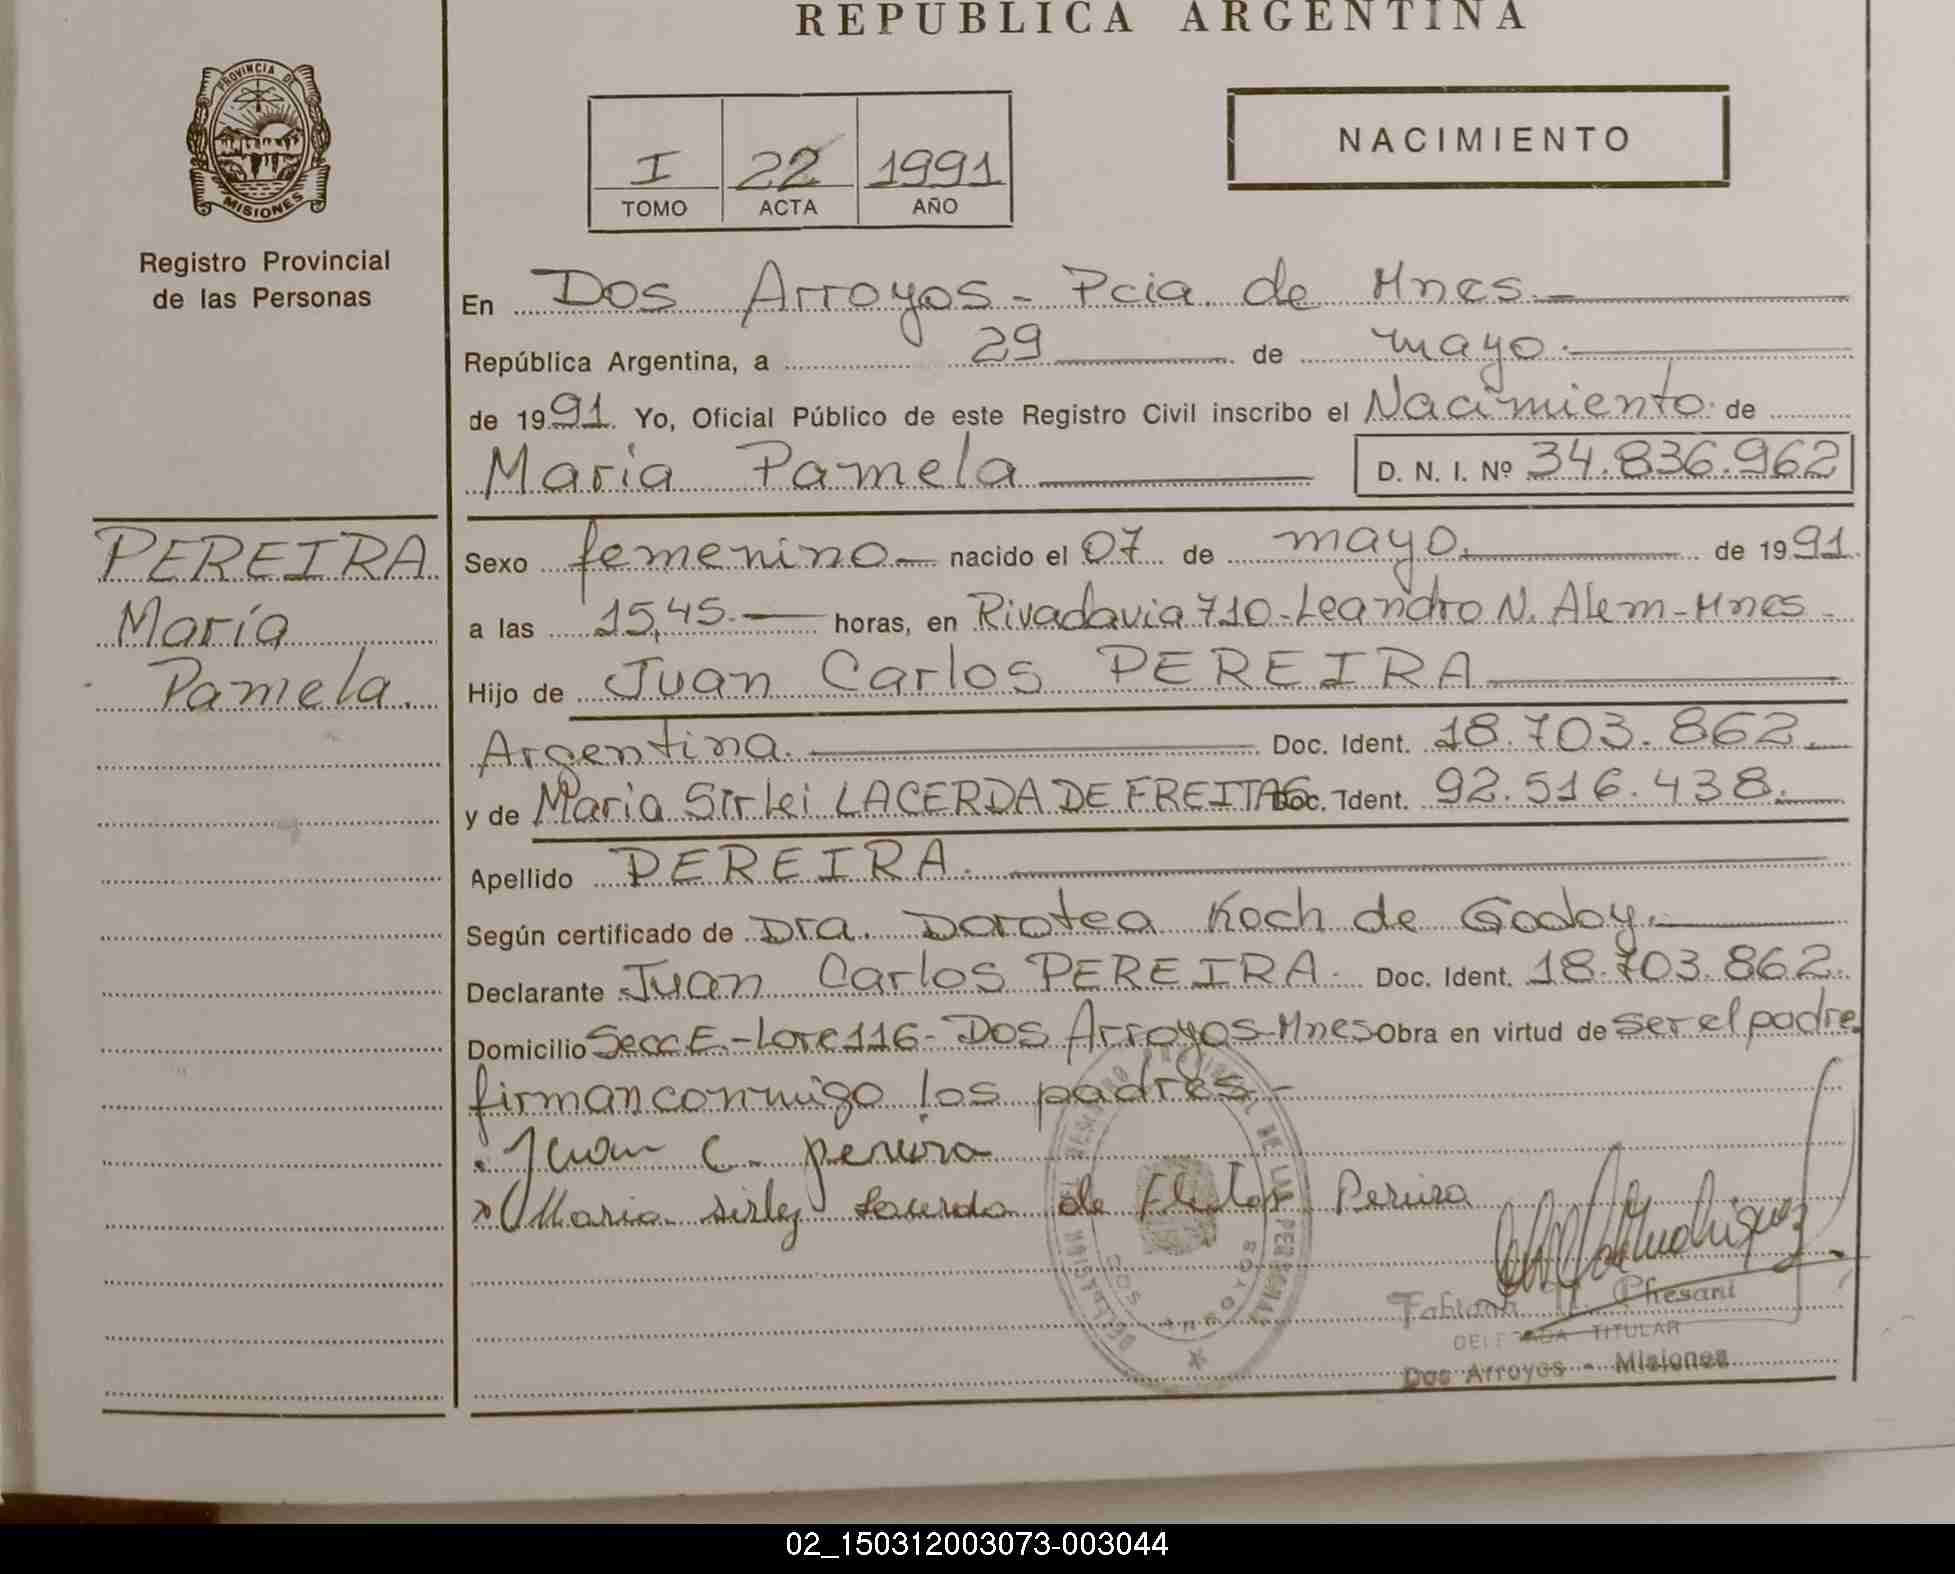 REPUBLICA ARGENTINA
PROVINCIA DE
MISIONES
Registro Provincial
de las Personas
I 22 1991
TOMO ACTA AÑO
NACIMIENTO
En Dos Arroyos - Pcia de Mnes.
República Argentina, a 29 de mayo.
de 1991. Yo, Oficial Público de este Registro Civil inscribo el Nacimiento de
Maria Pamela D. N. I. Nº 34.836.962
PEREIRA
María
Pamela.
Sexo femenino nacido el 07 de mayo. de 1991.
a las 15,45. horas, en Rivadavia 710-Leandro N. Alem-Mnes
Hijo de Juan Carlos PEREIRA
Argentina. Doc. Ident. 18.703.862.
y de Maria Sirlei LACERDA DE FREITAS Doc. Ident. 92.516.438.
Apellido PEREIRA.
Según certificado de Dra. Dorotea Koch de Godoy.
Declarante Juan Carlos PEREIRA. Doc. Ident. 18.703.862.
Domicilio Secc E.-Lote 116- Dos Arroyos-Mnes Obra en virtud de ser el padre.
firman conmigo los padres.-
Juan C. Pereira
Maria Sirley Lacerda de Pereira
DELEGADA TITULAR
Dos Arroyos - Misiones
02_150312003073-003044